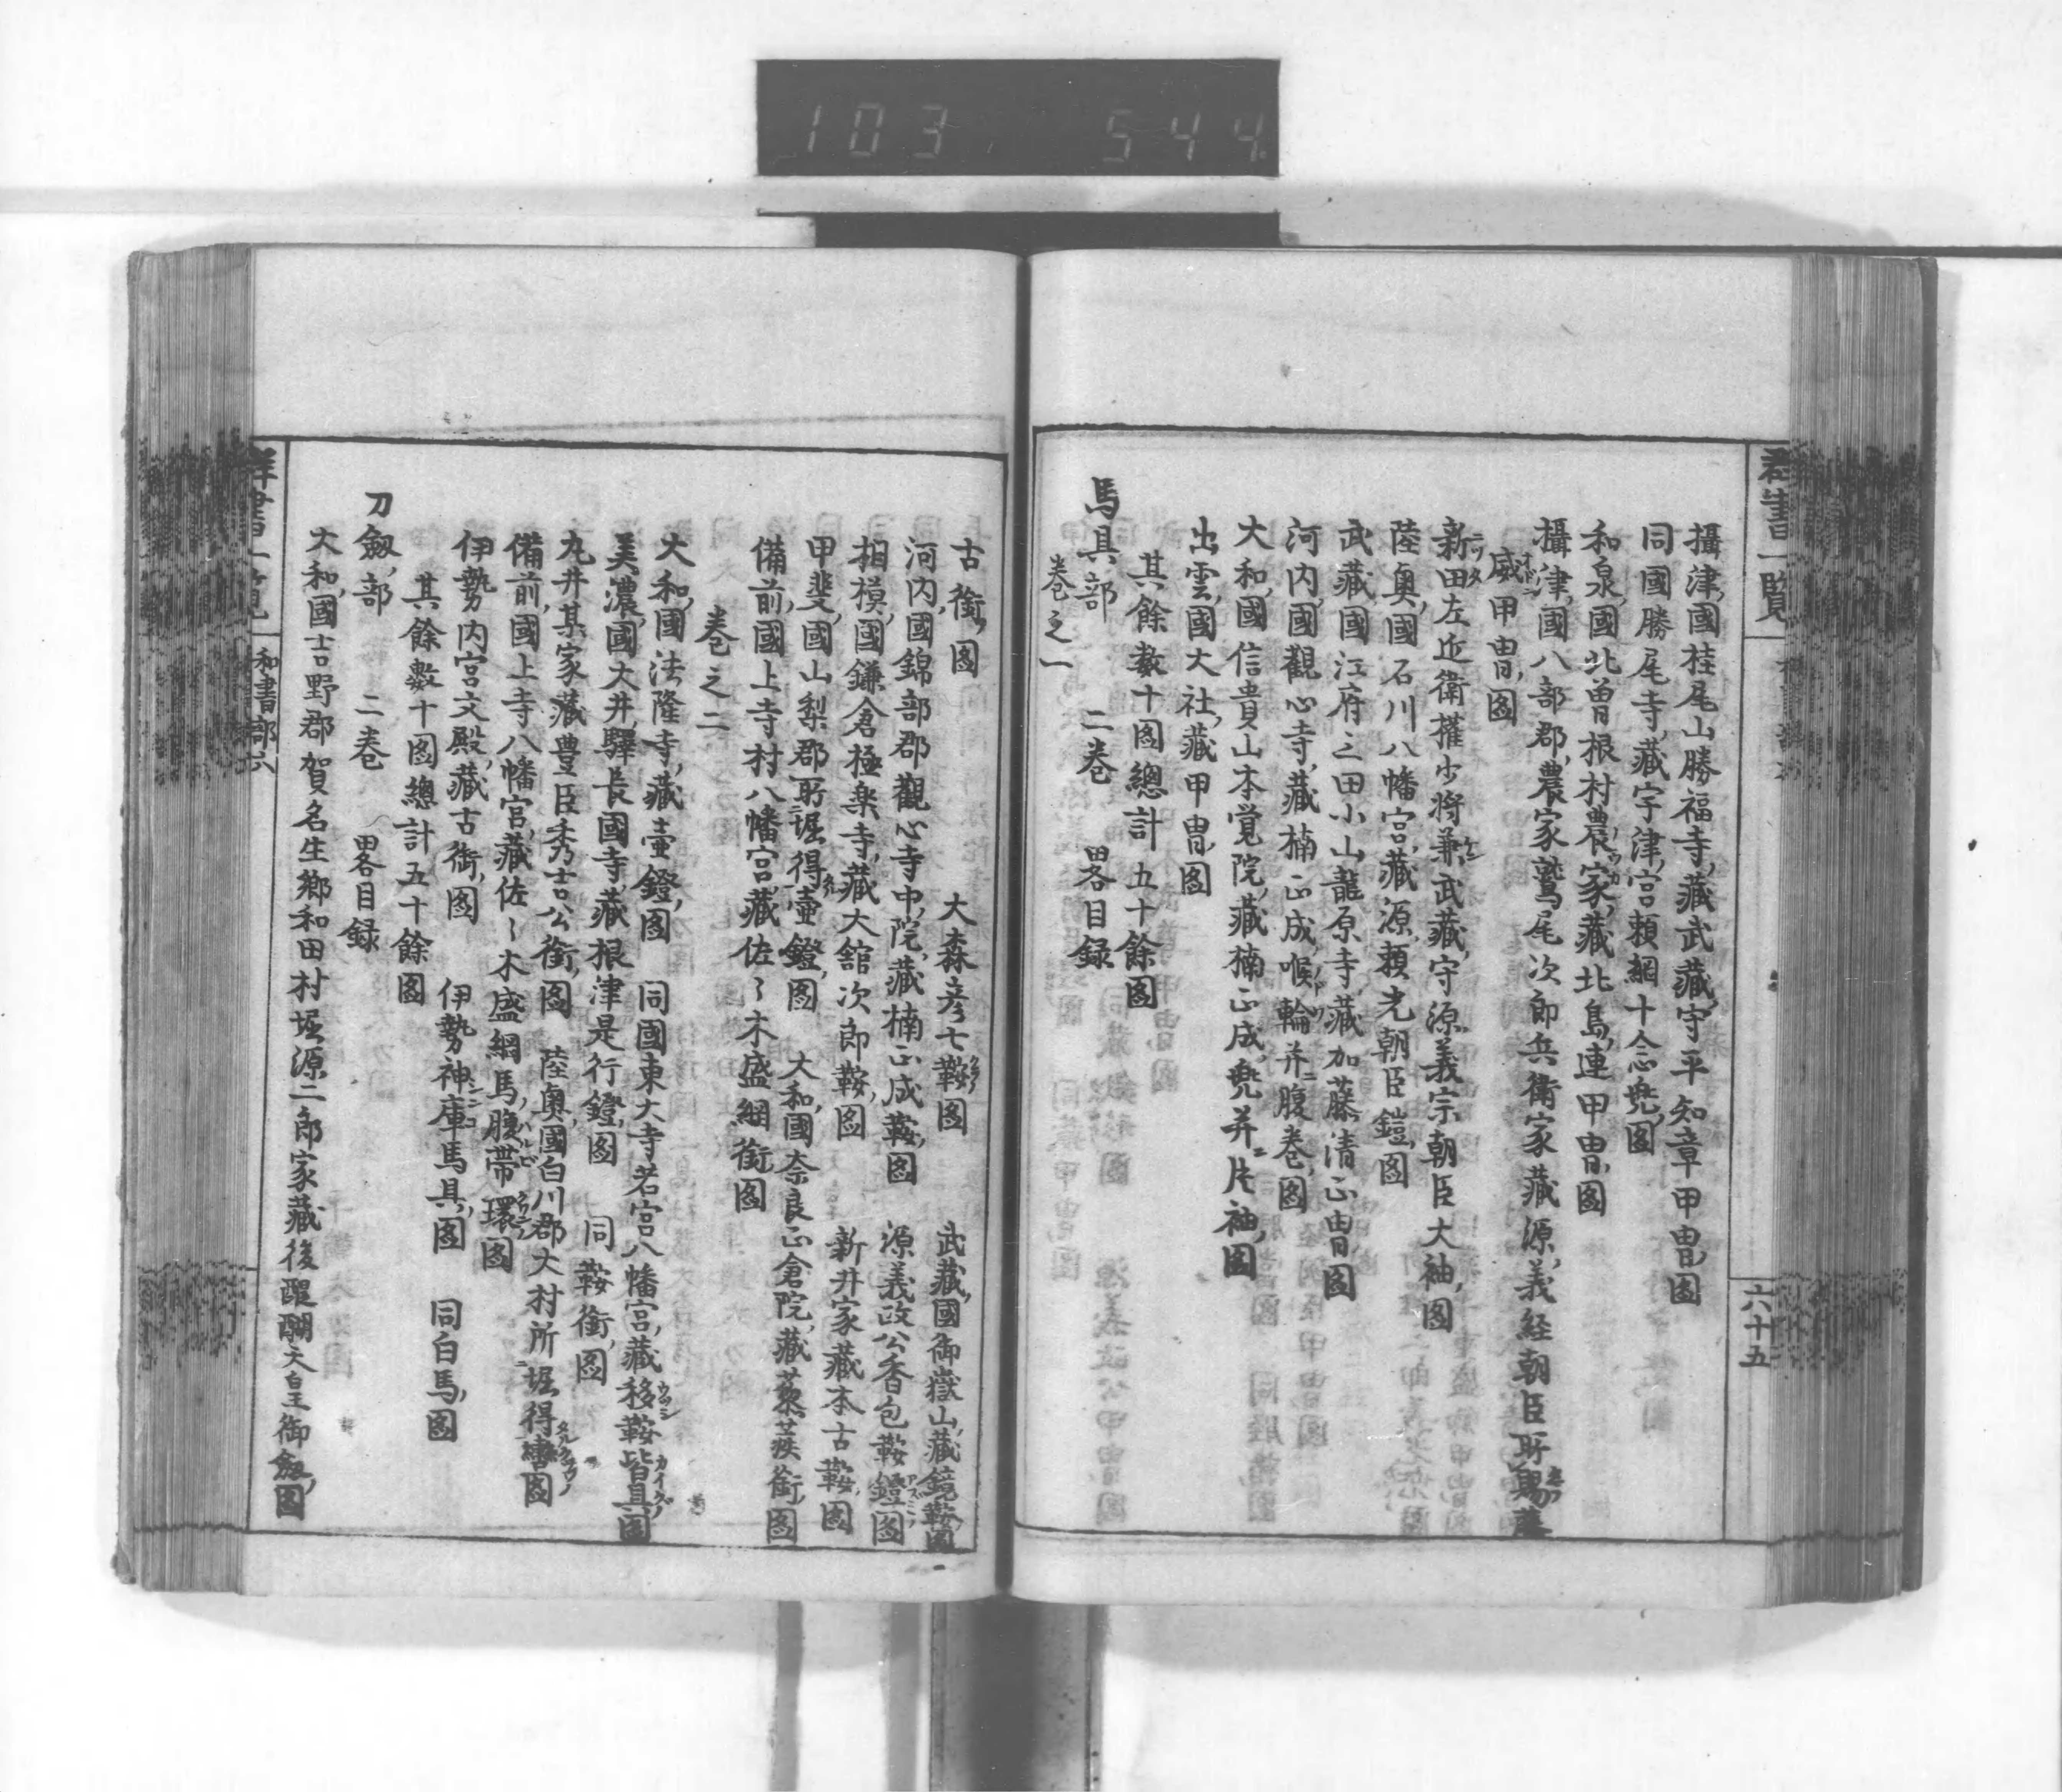 103 544
群書一覧
六十五
攝津國桂尾山勝福寺藏武藏守平知章甲冑圖
同國勝尾寺藏宇津宮頼綱十念兜圖
和泉國北曽根村農家藏北島連甲冑圖
攝津國八部郡農家鷲尾次郎兵衛家藏源義経朝臣所賜藤
威甲冑圖
新田左近衛權少将兼武藏守源義宗朝臣大袖圖
陸奥國石川八幡宮藏源頼光朝臣鎧圖
武藏國江府三田小山龍原寺藏加藤清正冑圖
河内國觀心寺藏楠正成喉輪并腹巻圖
大和國信貴山本覚院藏楠正成兜并片袖圖
出雲國大社藏甲冑圖
其餘數十圖總計五十餘圖
馬具部 二巻 畧目録
巻之一
古銜圖 大森彦七鞍圖 武藏國御嶽山藏鏡鞍圖
河内國錦部郡觀心寺中院藏楠正成鞍圖 源義政公香包鞍鐙圖
相模國鎌倉極楽寺藏大舘次郎鞍圖 新井家藏本古鞍圖
甲斐國山梨郡所堀得壷鐙圖 大和國奈良正倉院藏蒺䔧銜圖
備前國上寺村八幡宮藏佐々木盛綱銜圖
巻之二
大和國法隆寺藏壷鐙圖 同國東大寺若宮八幡宮藏移鞍皆具圖
美濃國大井驛長國寺藏根津是行鐙圖 同鞍銜圖
丸井某家藏豊臣秀吉公銜圖 陸奥國白川郡大村所堀得轡圖
備前國上寺八幡宮藏佐々木盛綱馬腹帯環圖
伊勢内宮文殿藏古銜圖 伊勢神庫馬具圖 同白馬圖
其餘數十圖總計五十餘圖
刀劔部 二巻 畧目録
大和國吉野郡賀名生郷和田村堀源二郎家藏後醍醐天皇御劔圖
群書一覧
和書部六